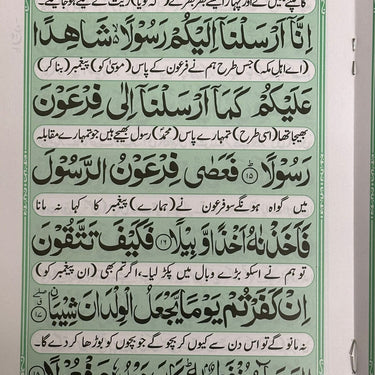 اِنَّاۤ اَرْسَلْنَاۤ اِلَیْكُمْ رَسُوْلًا ۙ۬ شَاهِدًا
(اے اہل مکہ) جس طرح ہم نے فرعون کے پاس (موسیٰ کو) پیغمبر (بنا کر)
عَلَیْكُمْ كَمَاۤ اَرْسَلْنَاۤ اِلٰی فِرْعَوْنَ
بھیجا تھا (اسی طرح) تمہارے پاس (محمدؐ) رسول بھیجے ہیں جو تمہارے مقابلہ
رَسُوْلًا ؕ ۱۵ فَعَصٰی فِرْعَوْنُ الرَّسُوْلَ
میں گواہ ہونگے سو فرعون نے (ہمارے) پیغمبر کا کہا نہ مانا
فَاَخَذْنٰهُ اَخْذًا وَّبِیْلًا ۱۶ فَكَیْفَ تَتَّقُوْنَ
تو ہم نے اسکو بڑے وبال میں پکڑ لیا۔ اگر تم بھی (ان پیغمبر کو)
اِنْ كَفَرْتُمْ یَوْمًا یَّجْعَلُ الْوِلْدَانَ شِیْبَا ۱۷
نہ مانو گے تو اس دن سے کیوں کر بچو گے جو بچوں کو بوڑھا کر دے گا۔